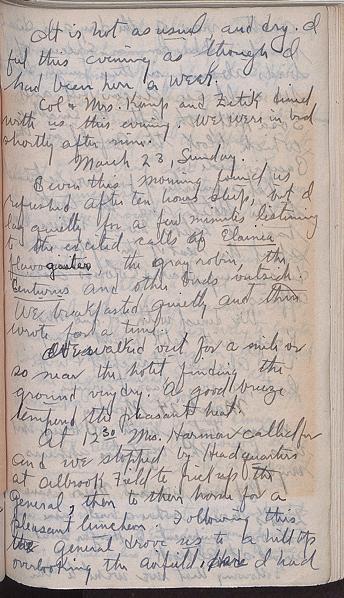 It is hot as usual and dry. I
feel this evening as though I
had been here a week.
Col & Mrs. and Zetek dined
with us this evening. We were in bed
shortly after nine.
March 23, Sunday.
Seven this morning found us
refreshed after ten hours sleep, but I
lay quietly for a few minutes listening
to the excited calls of Elainia
flavogaster the gray robin, the
Centurus and other birds outside.
We breakfasted quietly and then
wrote for a time.
We walked out for a mile or
so near the hotel finding the
ground very dry. A good breeze
tempered the pleasant heat.
At 12 30 Mrs. Harmon called for
and we stopped by Headquarters
at Albrook Field to pick up the
General, then to their house for a
pleasant luncheon. Following this
the General drove us to a hilltop
overlooking the airfield, I had